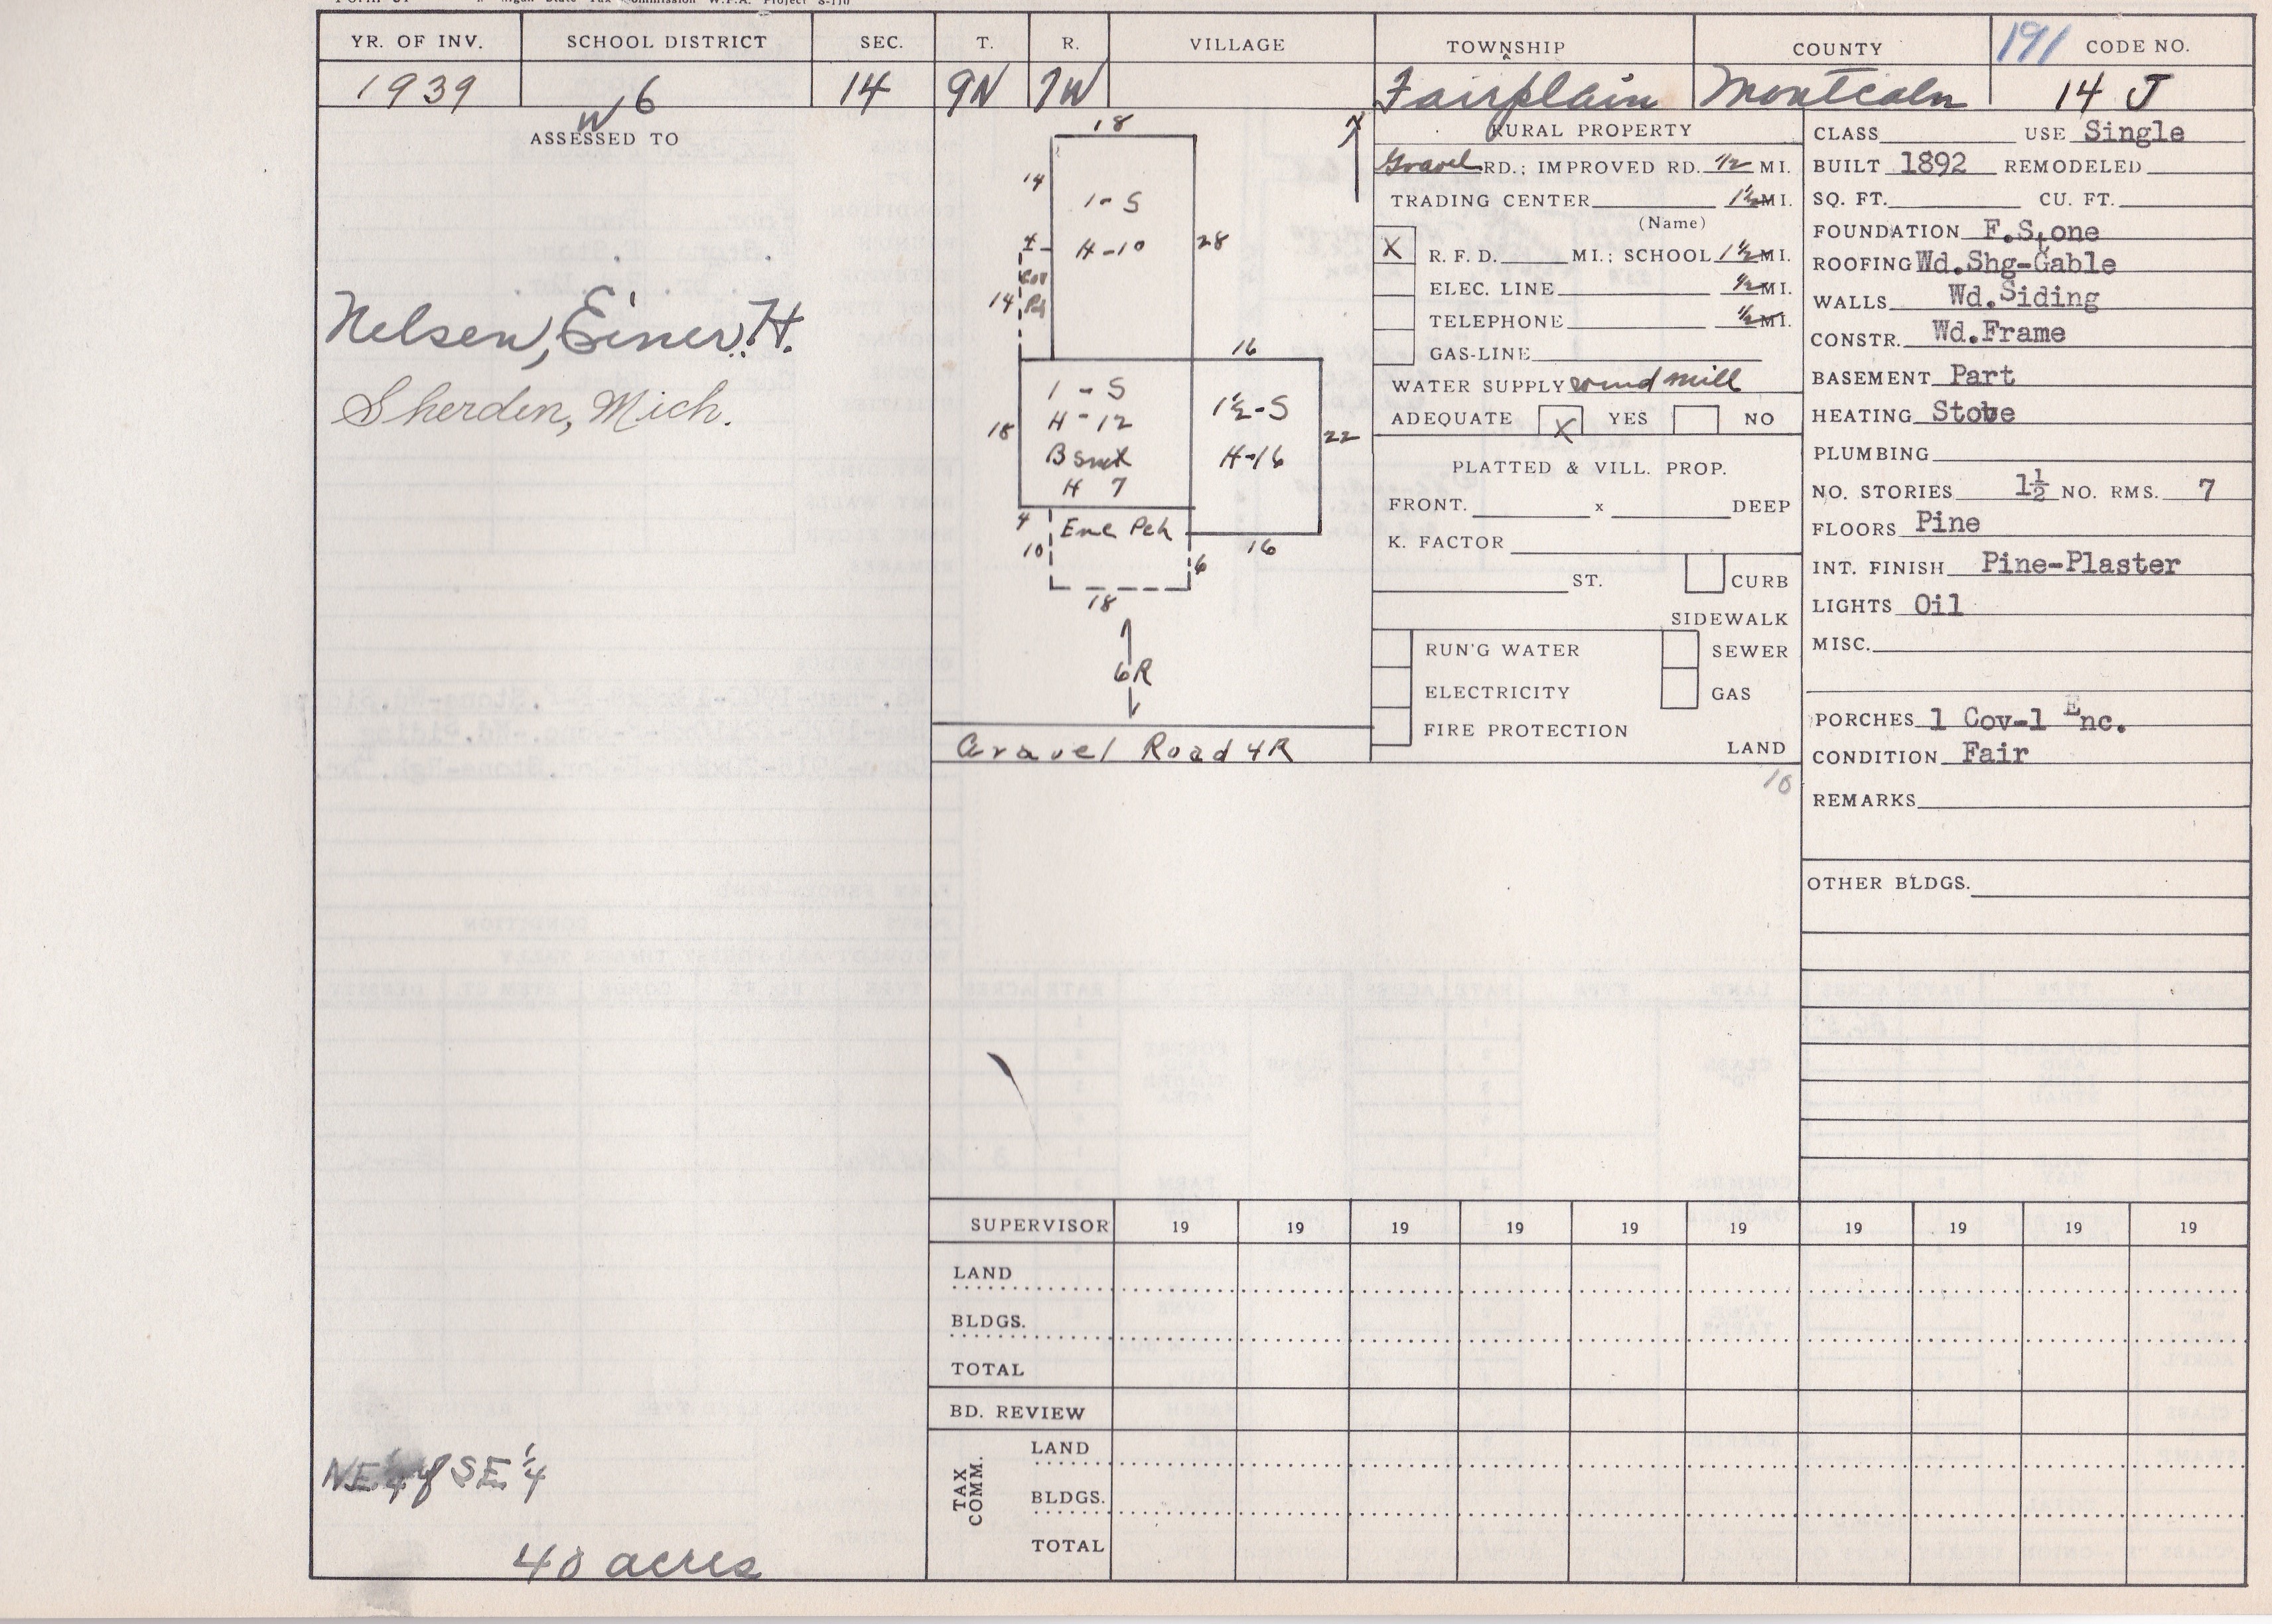 Tax Commission W.P.A. Project S-170
YR. OF INV. SCHOOL DISTRICT SEC. T. R. VILLAGE TOWNSHIP COUNTY 191 CODE NO.
1939 6 14 9N 7W Fairplain Montcalm 14 J
W
ASSESSED TO
Nelsen, Einer H.
Sherden, Mich.
NE 1/4 of SE 1/4
40 acres
18
14
1-S
H-10
28
4
Cov
Pch
14
16
1-S
H-12
Bsmt
H 7
18
1½-S
H-16
22
4
Enc Pch
10
6
16
18
6R
Gravel Road 4R
RURAL PROPERTY
Gravel RD.; IMPROVED RD. 1/2 MI.
TRADING CENTER 1½ MI.
(Name)
X R. F. D. MI.; SCHOOL 1½ MI.
ELEC. LINE 1/2 MI.
TELEPHONE 1/2 MI.
GAS-LINE
WATER SUPPLY wind mill
ADEQUATE X YES NO
PLATTED & VILL. PROP.
FRONT. x DEEP
K. FACTOR
ST. CURB
SIDEWALK
RUN'G WATER SEWER
ELECTRICITY GAS
FIRE PROTECTION
LAND
10
CLASS USE Single
BUILT 1892 REMODELED
SQ. FT. CU. FT.
FOUNDATION F.Stone
ROOFING Wd.Shg-Gable
WALLS Wd.Siding
CONSTR. Wd.Frame
BASEMENT Part
HEATING Stove
PLUMBING
NO. STORIES 1½ NO. RMS. 7
FLOORS Pine
INT. FINISH Pine-Plaster
LIGHTS Oil
MISC.
PORCHES 1 Cov-1 Enc.
CONDITION Fair
REMARKS
OTHER BLDGS.
SUPERVISOR 19 19 19 19 19 19 19 19 19 19
LAND
BLDGS.
TOTAL
BD. REVIEW
TAX COMM.
LAND
BLDGS.
TOTAL